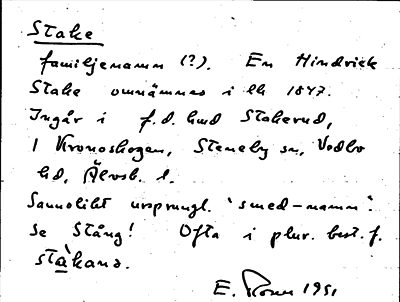 Stake
familjenamn (?). En Hindrick
Stake omnämnes i lh 1847.
Ingår i f.d. lmd Stakerud,
i Kronoskogen, Steneby sn, Vedbo
hd, Älvsb. l.
Sannolikt urspr​ungl. 'smed-namn'.
Se Stång! Ofta i plur. best. f.
stàkana.
E. 1951